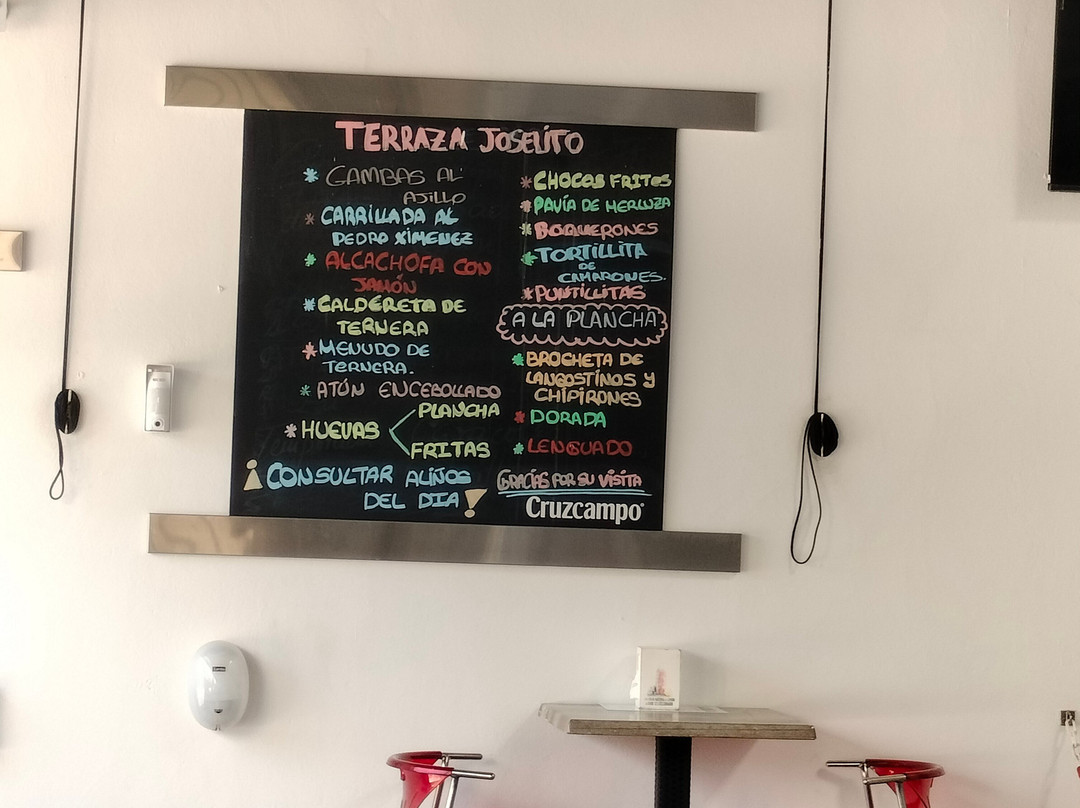 TERRAZA JOSELITO
* GAMBAS AL
AJILLO
* CARRILLADA AL
PEDRO XIMENEZ
* ALCACHOFA CON
JAMÓN
* CALDERETA DE
TERNERA
* MENUDO DE
TERNERA.
* ATÚN ENCEBOLLADO
* HUEVAS
PLANCHA
FRITAS
¡CONSULTAR ALIÑOS
DEL DIA!
* CHOCOS FRITOS
* PAVÍA DE MERLUZA
* BOQUERONES
* TORTILLITA
DE
CAMARONES.
* PUNTILLITAS
A LA PLANCHA
* BROCHETA DE
LANGOSTINOS Y
CHIPIRONES
* DORADA
* LENGUADO
GRACIAS POR SU VISITA
Cruzcampo